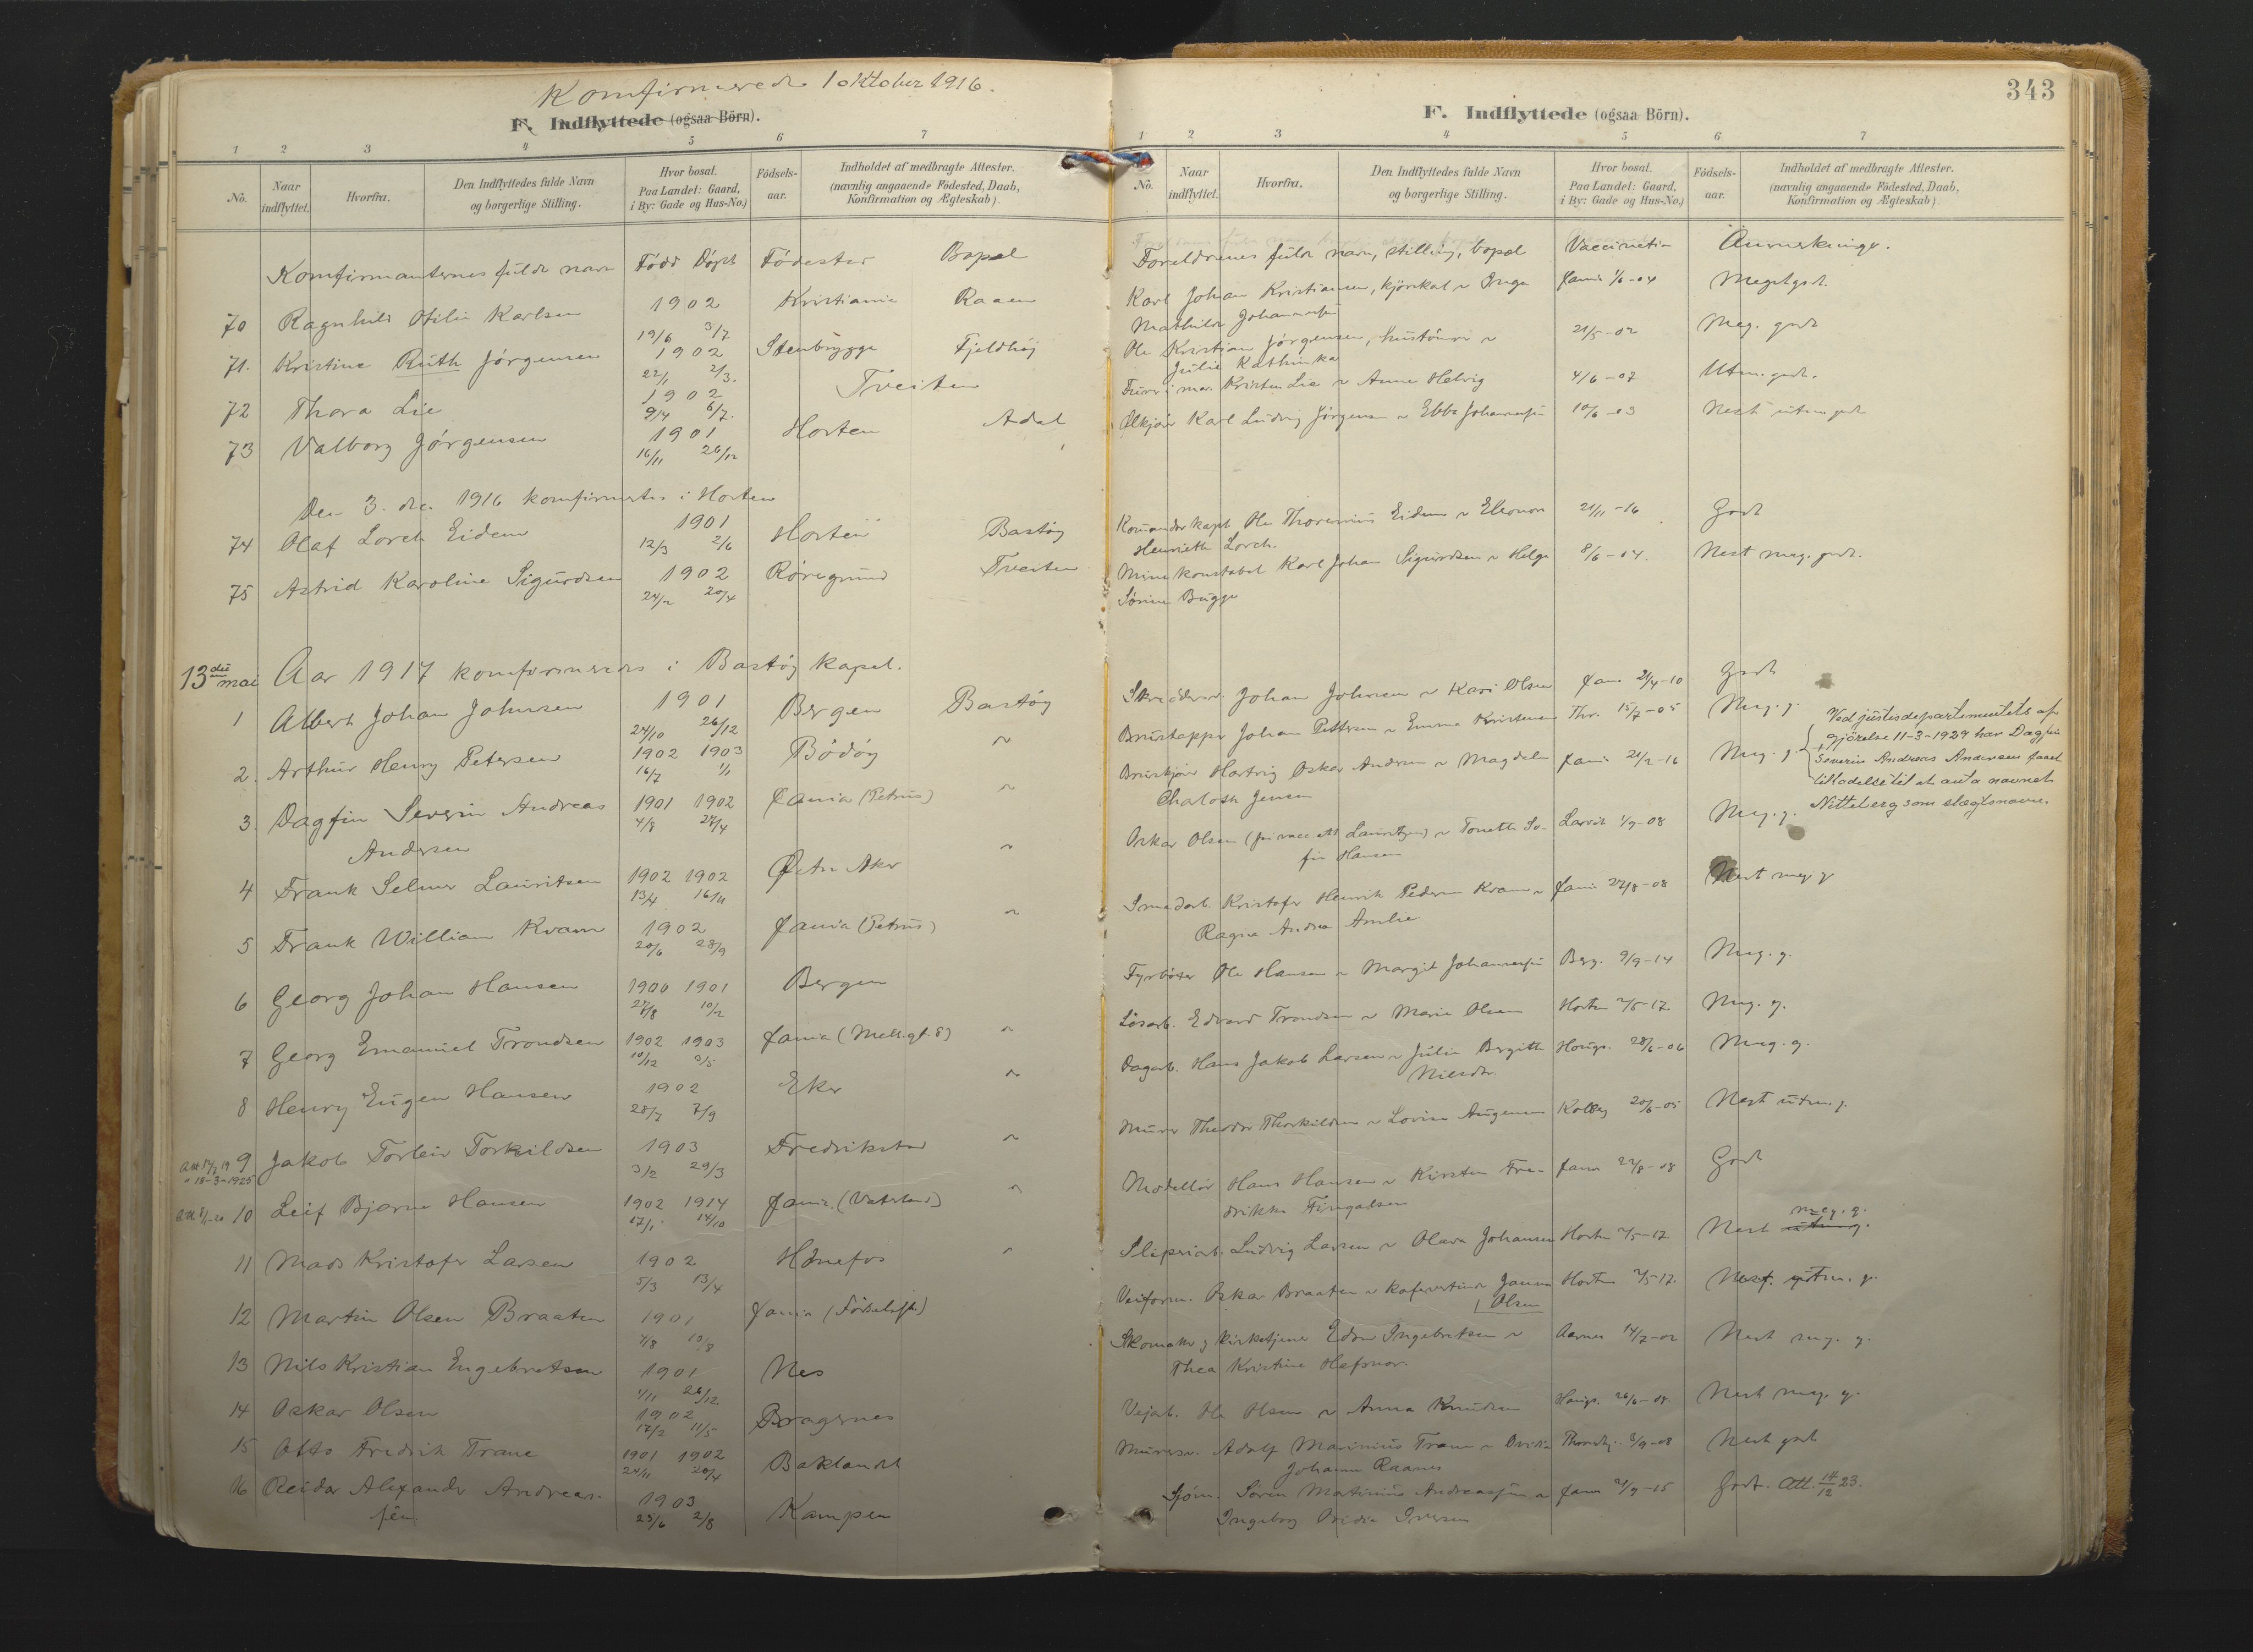 Konfirmerede 1 oktober 1916.
F. Indflyttede (ogsaa Börn).
1 2 3 4 5 6 7
No.
Naar indflyttet.
Hvorfra.
Den Indflyttedes fulde Navn og borgerlige Stilling.
Hvor bosat. Paa Landet: Gaard, i By: Gade og Hus-No.)
Födsels-aar.
Indholdet af medbragte Attester. (navnlig angaaende Födested, Daab, Konfirmation og Ægteskab)
Konfirmanternes fulde navn Född Döpt Födested Bopæl
70 Ragnhild Otilie Karlsen 1902 19/6 3/7 Kristiania Raaen
71. Kristine Ruth Jörgensen 1902 22/1 2/3. Stenbrygga Fjeldhöj
72 Thora Lie 1902 9/4 6/7. Tveiten
73 Valborg Jörgensen 1901 16/11 26/12 Horten Adal
Den 3. dec. 1916 konfirmertes i Horten
74 Olaf Lorch Eidem 1901 12/3 2/6 Horten Bastöy
75 Astrid Karoline Sigurdsen 1902 24/2 20/4 Röregrund Tveiten
13 de mai Aar 1917 konfirmeredes i Bastöy kapel.
1 Albert Johan Johnsen 1901 24/10 26/12 Bergen Bastöy
2. Arthur Henry Petersen 1902 1903 16/7 1/1 Bödöy "
3. Dagfin Severin Andreas Andersen 1901 1902 4/8 27/4 Xania (Petrus) "
4 Frank Selmer Lauritsen 1902 1902 13/4 16/11 Østre Aker "
5 Frank William Kvam 1902 20/6 28/9 Xania (Petrus) "
6 Georg Johan Hansen 1900 1901 27/8 10/2 Bergen
7 Georg Emanuel Trondsen 1902 1903 10/12 3/5 Xania "
8 Henry Eugen Hansen 1902 28/7 7/9 Eker "
9 Jakob Torleiv Torkildsen 1903 3/2 29/3 Fredrikstad "
" 18-3-1925
10 Leif Bjarne Hansen 1902 1914 17/1 14/10 Xania. (Vaterland) "
11 Mads Kristofer Larsen 1902 5/3 13/4 Hönefos "
12 Martin Olsen Braaten 1901 Xania
13 Nils Kristian Engebretsen 1901 1/11 26/12 Nes
14 Oskar Olsen 1902 17/2 11/5 Bragernes
15 Otto Fredrik Trane 1901 1902 24/11 20/4 Baklandet
16 Reidar Alexander Andreassen 1903 23/6 2/8 Kampen
343
F. Indflyttede (ogsaa Börn).
1 2 3 4 5 6 7
No.
Naar indflyttet.
Hvorfra.
Den Indflyttedes fulde Navn og borgerlige Stilling.
Hvor bosat. Paa Landet: Gaard, i By: Gade og Hus-No.)
Födsels-aar.
Indholdet af medbragte Attester. (navnlig angaaende Födested, Daab, Konfirmation og Ægteskab)
Foreldrenes fulde navn, stilling, bopæl Vaccination Anmerkninger.
Karl Johan Kristiansen, kjörekal " Inga Mathilde Johannessen Xania 1/6-04 Meget godt.
Ole Kristian Jörgensen, " Julie Kathinka 21/5-02 Meg. godt
Kristen Lie " Anne Helvig 4/6-07 Utm. godt.
Ølkjörer Karl Ludvig Jörgensen " Ebba Johannessen 10/6-03 Nest utm. godt
Komandörkapt. Ole Thorenius Eidem " Eleonore Henriette Lorch. 21/11-16 Godt
Minekonstabel Karl Johan Sigurdsen " Helga Sörine Bugge 8/6-04. Nest meg. godt.
Johan Johnsen " Kari Olsen Xania 21/4-10 Godt
Brustapper Johan Pettersen " Emma Kristensen Thr. 15/7-05 Meg. g.
Bruskjörer Hartvig Oskar Andersen " Magdale Charlotte Jensen Xania 21/2-16 Meg. g.
Ved justisdepartementets af
gjörelse 11-3-1929 har Dagfin
Severin Andreas Andersen faaet
tilladelse til at anta navnet
Nitteberg som slægtsnavn.
Oskar Olsen " Tonette Sofie Hansen Larvik 1/9-08 Meg. g.
Smedarb. Kristofer Henrik Pedersen Kvam " Ragna Andrea Amlie. Xania 27/8-08 Nest meg g
Fyrböter Ole Hansen " Margit Johannessen Berg. 9/9-14 Meg. g.
Lösarb. Edvard Trondsen " Marie Olsen Horten 2/5-17 Meg. g.
Dagarb. Hans Jakob Larsen " Julie Bergitte Nilsdtr. Hougs. 28/6-06 Meg. g.
Murer Theodor Thorkildsen " Lovise Augensen 20/6-05 Nest utm. g.
Modellör Hans Hansen " Kirsten Fredrikke Fingalsen Xania 22/8-08 Godt
Sliperiarb. Ludvig Larsen " Olava Johansen Horten 2/5-17. Nest utm g. meg. g.
Veiform. Oskar Braaten " Janna Olsen Horten 2/5-17. Nest utm. g.
Skomaker og kirketjener Edvn Ingebretsen " Thea Kristine Hafsnor. Aarnes 14/7-02 Nest meg. g.
Vejarb. Ole Olsen " Anna Knudsen Hougs. 26/6-08 Nest meg. g.
Adolf Marinius Trane " Ovidia Johanne Raanes 3/9-08 Nest godt
Sjöm. Sören Martinius Andreassen " Ingeborg Ovidia Iversen Xania 2/9-15 Godt. Att. 14/12 23.